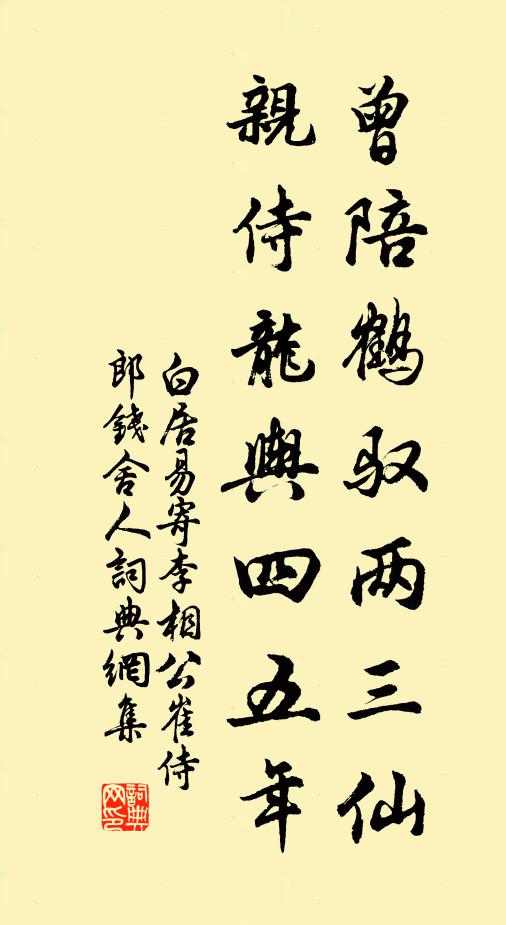 曾陪鶴驭两三仙
親侍龍輿四五年
白居易寄李相公崔侍
郎錢舍人詞典網集
詞典
网印